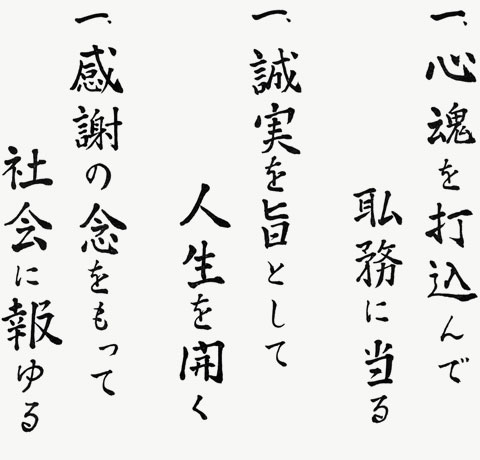 一、心魂を打込んで
耺務に当る
一、誠実を旨として
人生を開く
一、感謝の念をもって
社会に報ゆる